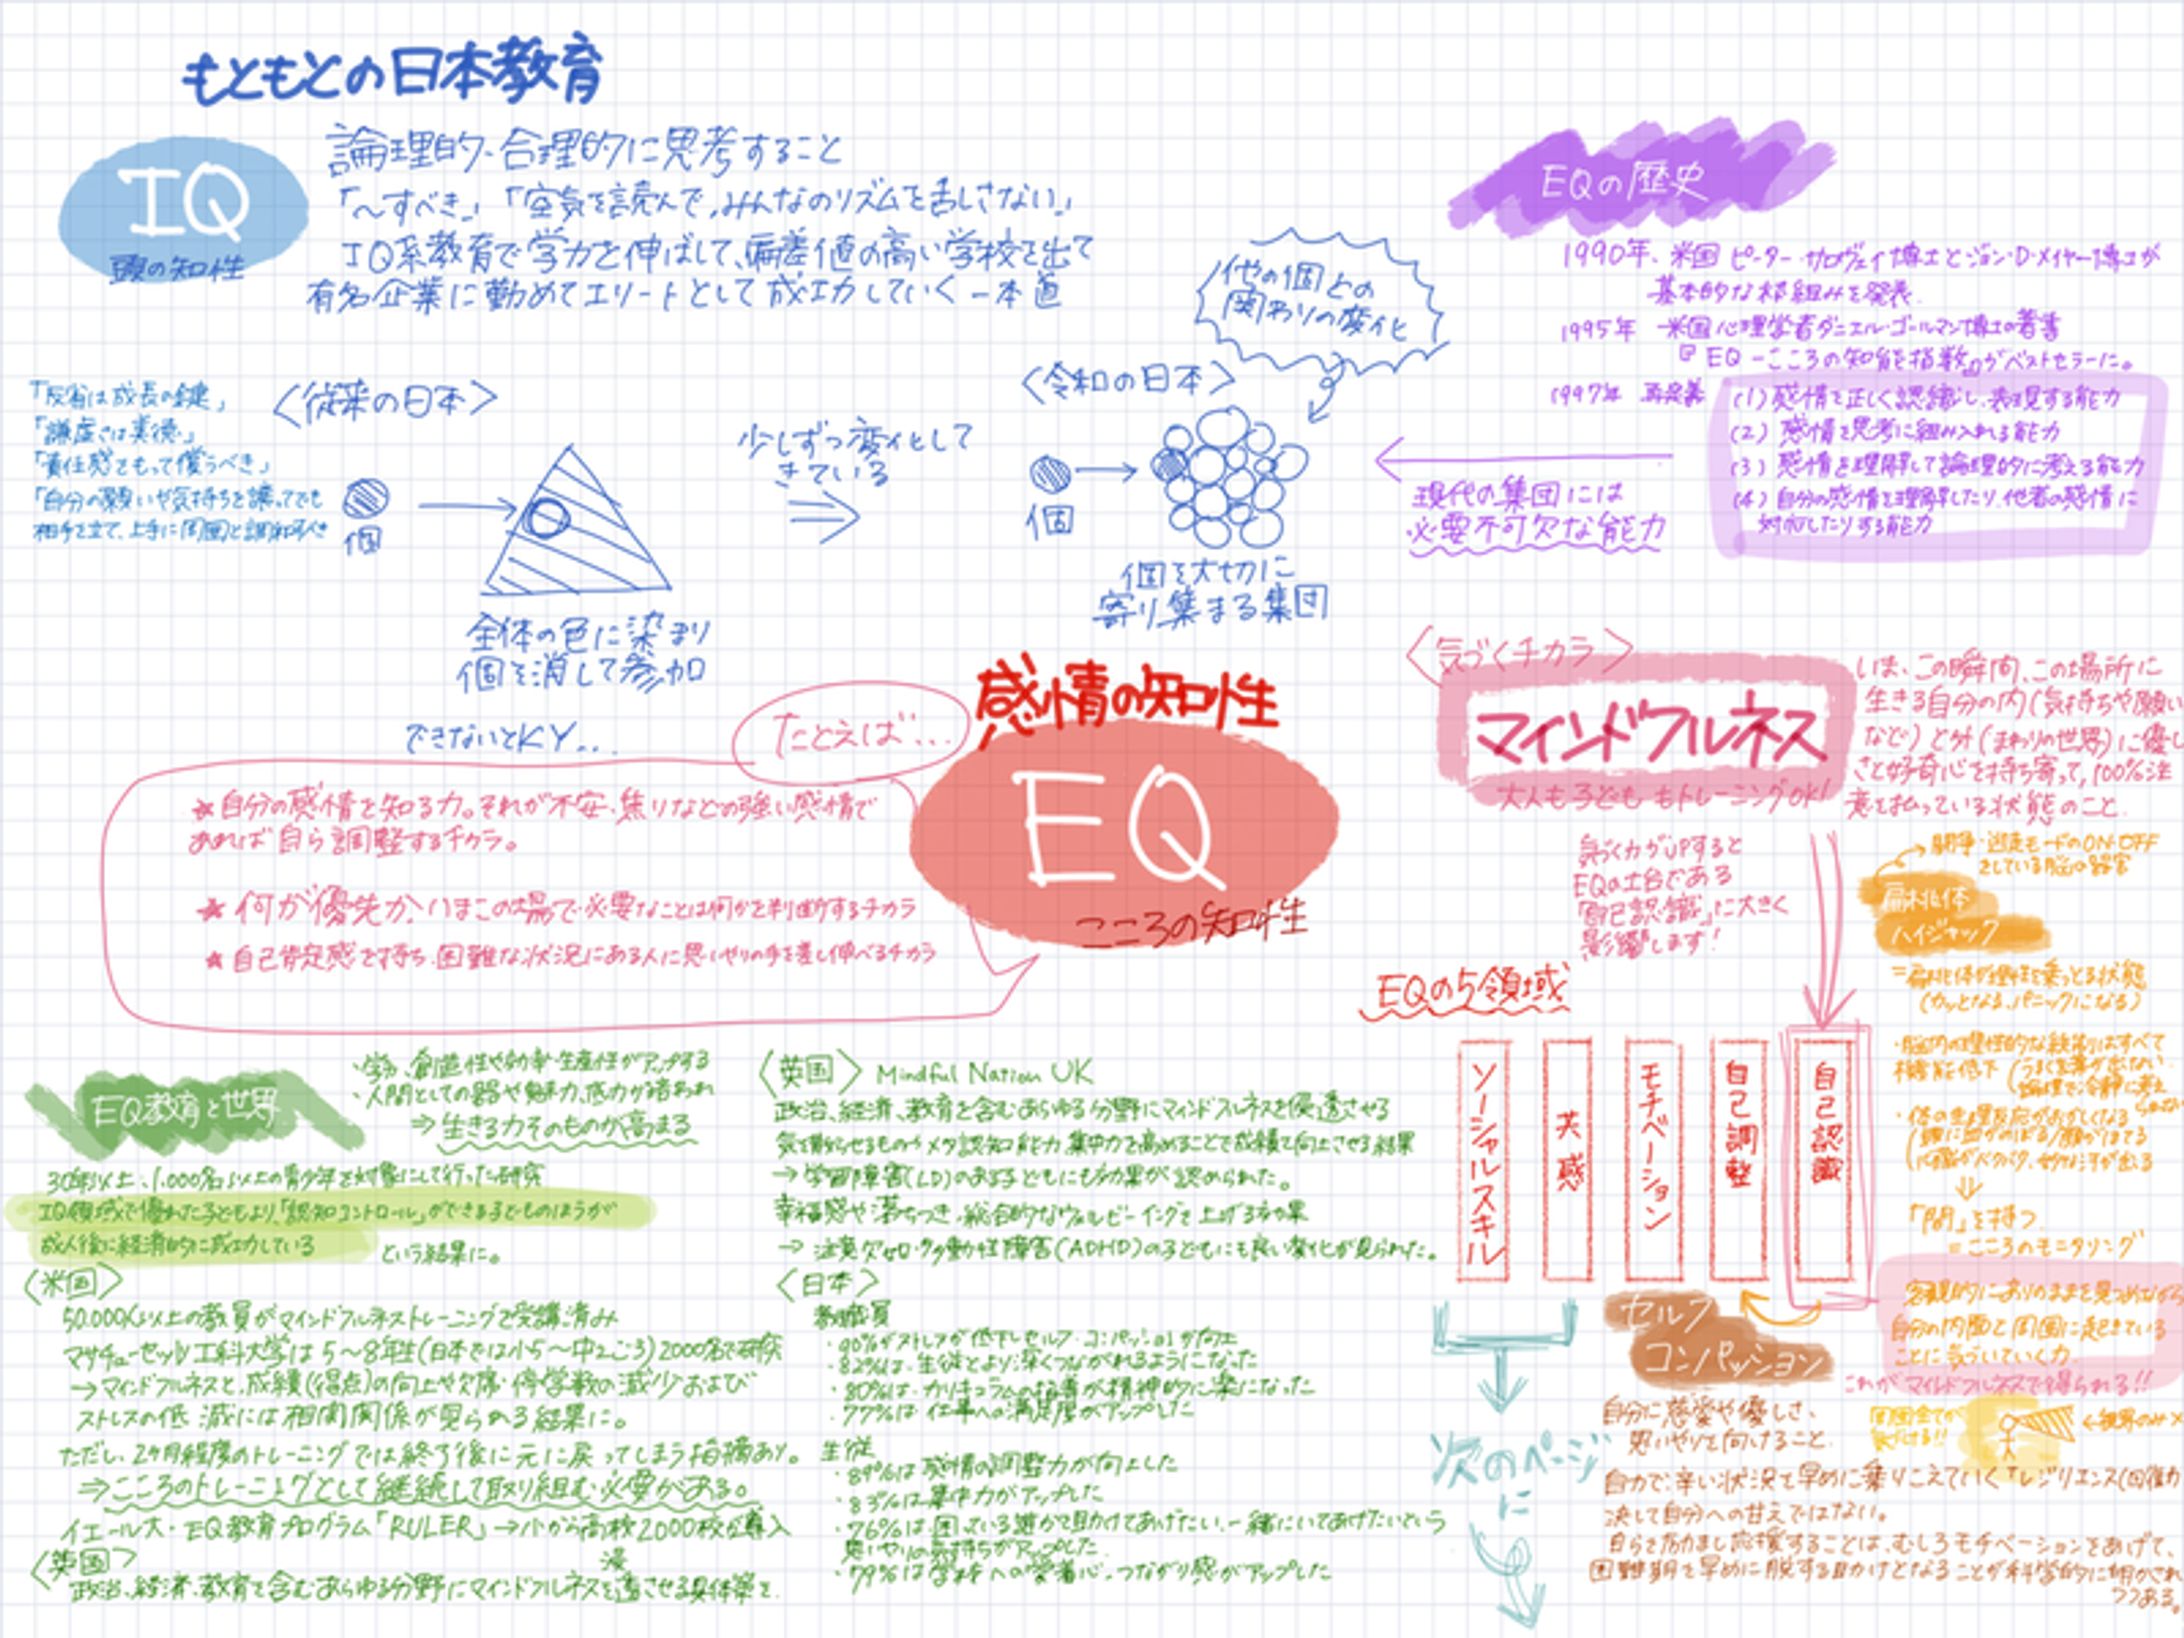 もともとの日本教育
IQ
頭の知性
論理的・合理的に思考すること
「～すべき」「空気を読んで、みんなのリズムを乱さない」
IQ系教育で学力を伸ばして、偏差値の高い学校を出て
有名企業に勤めてエリートとして成功していく一本道
「反省は成長の鍵」
「謙虚さは美徳」
「責任感をもって償うべき」
「自分の願いや気持ちを譲ってでも
相手を立て、上手に周囲と調和すべき
〈従来の日本〉
個
全体の色に染まり
個を消して参加
できないとKY...
少しずつ変化して
きている
〈令和の日本〉
個
他の個との
関わりの変化
個を大切に
寄り集まる集団
EQの歴史
1990年、米国 ピーター・サロヴェイ博士とジョン・D・メイヤー博士が
基本的な枠組みを発表.
1995年 米国心理学者ダニエル・ゴールマン博士の著書
『EQ-こころの知能指数』がベストセラーに。
1997年 再定義
(1) 感情を正しく認識し、表現する能力
(2) 感情を思考に組み入れる能力
(3) 感情を理解して論理的に考える能力
(4) 自分の感情を理解したり、他者の感情に
対応したりする能力
現代の集団には
必要不可欠な能力
感情の知性
EQ
こころの知性
たとえば...
★自分の感情を知る力。それが不安・焦りなどの強い感情で
あれば自ら調整するチカラ。
★何が優先か、いまこの場で必要なことは何かと判断するチカラ
★自己肯定感を持ち、困難な状況にある人に思いやりの手を差し伸べるチカラ
〈気づくチカラ〉
マインドフルネス
大人も子どももトレーニングOK!
いま、この瞬間、この場所に
生きる自分の内(気持ちや願い
など)と外(まわりの世界)に優し
さと好奇心を持ち寄って、100%注
意を払っている状態のこと.
気づく力がUPすると
EQの土台である
「自己認識」に大きく
影響します!
闘争・逃走モードのON・OFF
をしている脳の器官
扁桃体
ハイジャック
=扁桃体が理性を乗っとる状態
(カッとなる、パニックになる)
・脳内の理性的な鍛錬はすべて
機能低下
・体の生理反応がおかしくなる
「間」を持つ
=こころのモニタリング
客観的にありのままを見つめながら
自分の内面と周囲に起きている
ことに気づいていく力
これがマインドフルネスで得られる!!
EQの5領域
ソーシャルスキル
共感
モチベーション
自己調整
自己認識
次のページ
に
セルフ
コンパッション
自分に慈愛や優しさ、
思いやりを向けること.
自力で辛い状況を早めに乗りこえていく「レジリエンス(回復力
決して自分への甘えではない。
自らを励まし応援することは、むしろモチベーションをあげて、
困難期を早めに脱する助けとなることが科学的に明かされ
つつある。
EQ教育と世界
・学力、創造性や効率・生産性がアップする
・人間としての器や魅力、底力が培われ
⇒生きる力そのものが高まる
30年以上、1,000名以上の青少年を対象にして行った研究
IQ領域で優れた子どもより、「認知コントロール」ができる子どものほうが
成人後に経済的に成功している
という結果に。
〈米国〉
50,000人以上の教員がマインドフルネストレーニングを受講済み
マサチューセッツ工科大学は5～8年生(日本では小5～中2ごろ)2000名で研究
→マインドフルネスと、成績(得点)の向上や欠席・停学数の減少および
ストレスの低減には相関関係が見られる結果に。
ただし、2ヶ月程度のトレーニングでは終了後に元に戻ってしまう指摘あり。
⇒こころのトレーニングとして継続して取り組む必要がある。
イエール大・EQ教育プログラム「RULER」→小から高校2000校が導入
〈英国〉
政治、経済、教育を含むあらゆる分野にマインドフルネスを浸透させる具体策を.
〈英国〉 Mindful Nation UK
政治、経済、教育を含むあらゆる分野にマインドフルネスを浸透させる
気を散らせるものやメタ認知能力、集中力を高めることで成績を向上させる結果
→学習障害(LD)のある子どもにも効果が認められた。
幸福感や落ちつき、総合的なウェルビーイングを上げる効果
→注意欠如・多動性障害(ADHD)の子どもにも良い変化が見られた。
〈日本〉
教職員
・90%がストレスが低下しセルフ・コンパッションが向上
・82%は、生徒とより深くつながれるようになった
・80%は、カリキュラムの指導が精神的に楽になった
・77%は、仕事への満足度がアップした
生徒
・89%は感情の調整力が向上した
・83%は集中力がアップした
・76%は、困っている誰かを助けてあげたい、一緒にいてあげたいという
思いやりの気持ちがアップした
・79%は学校への愛着心、つながり感がアップした